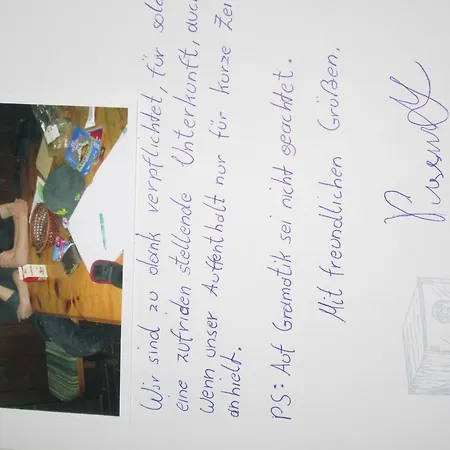 Wir sind zu dank verpflichtet, für solc
eine zufriden stellende Unterkunft, auch
wenn unser Auftenthalt nur für kurze Zei
anhielt.
PS: Auf Gramatik sei nicht geachtet.
Mit freundlichen Größen,